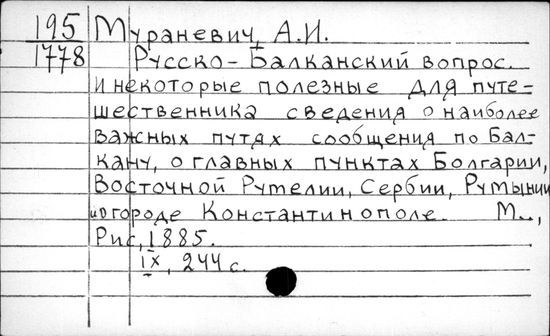 195 Мураневич, А.И.
1778 Русско-Балканский вопрос.
и некоторые полезные для путе-
шественника сведения о наиболее
важных путях сообщения по Бал-
кану, о главных пунктах Болгарии,
Восточной Румелии, Сербии, Румынии
и о городе Константинополе. М.,
Рис, 1885.
IX, 244 с.